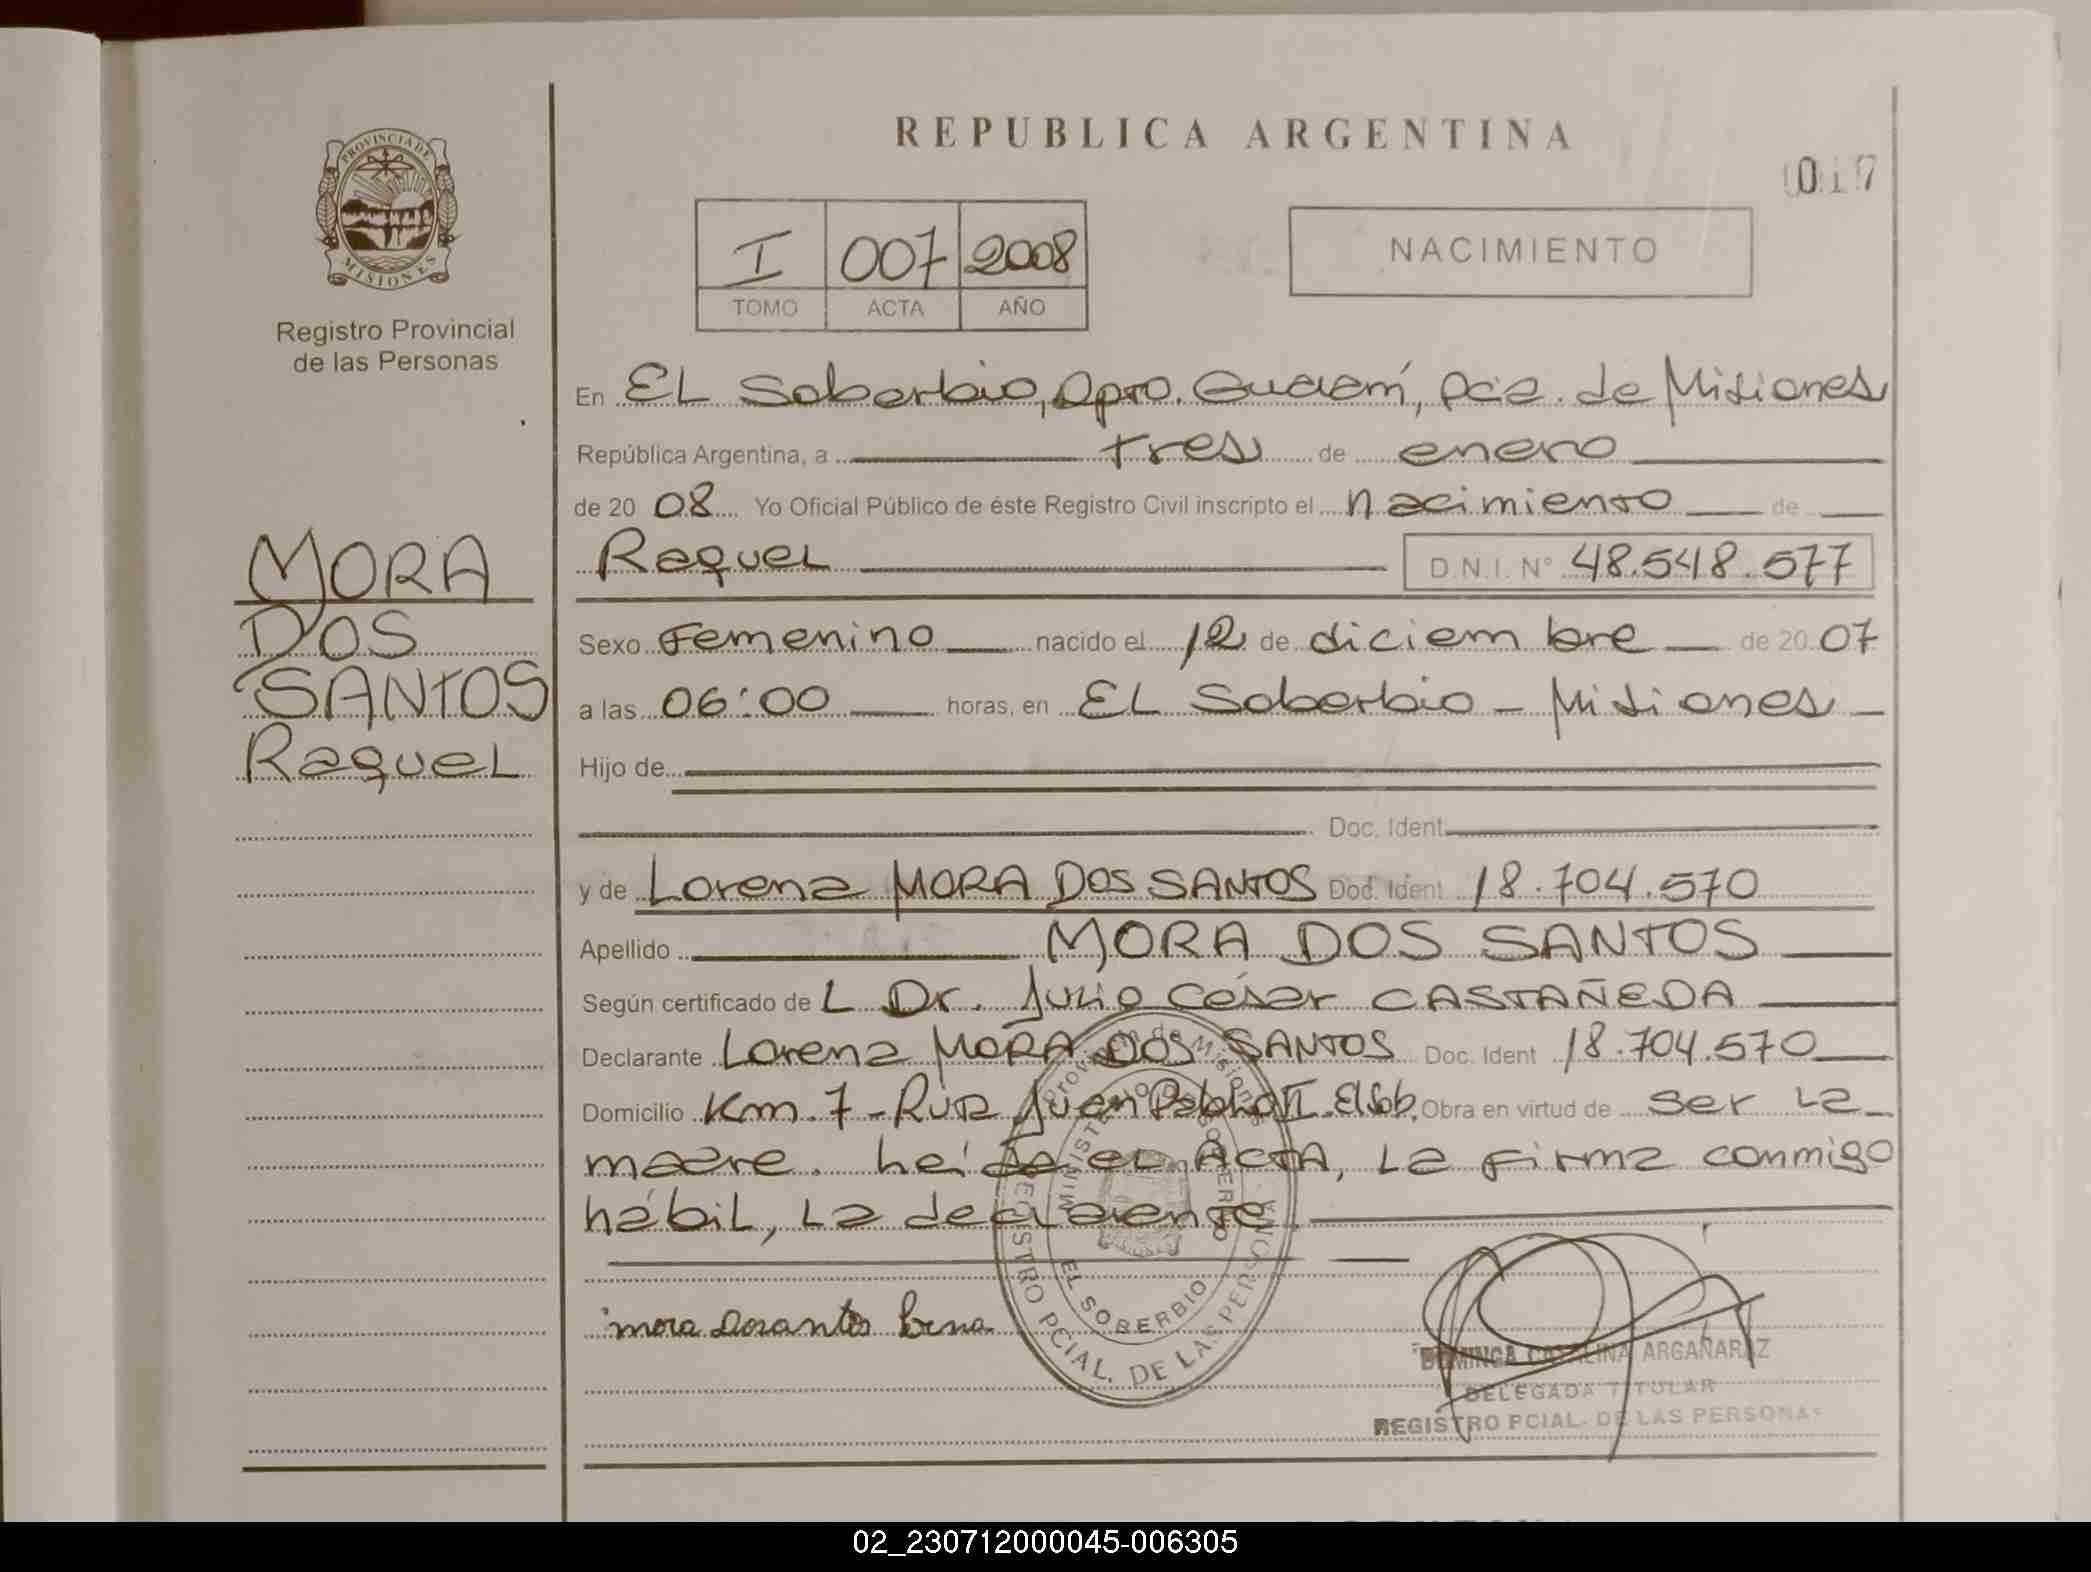 REPUBLICA ARGENTINA
017
PROVINCIA DE
MISIONES
Registro Provincial
de las Personas
I 007 2008
TOMO ACTA AÑO
NACIMIENTO
En EL Soberbio, Dpto. Guaraní, Pcia. de Misiones
República Argentina, a tres de enero
de 20 08 Yo Oficial Público de éste Registro Civil inscripto el nacimiento de
Raquel D.N.I. Nº 48.548.577
MORA
DOS
SANTOS
Raquel
Sexo Femenino nacido el 12 de diciembre de 20 07
a las 06:00 horas, en EL Soberbio - Misiones
Hijo de
Doc. Ident.
y de Lorena MORA DOS SANTOS Doc. Ident 18.704.570
Apellido MORA DOS SANTOS
Según certificado de L Dr. Julio César CASTAÑEDA
Declarante Lorena MORA DOS SANTOS Doc. Ident 18.704.570
Domicilio Km. 7 - Ruta Juan Pablo II. El Sob. Obra en virtud de ser la
madre. Leída el ACTA, la firma conmigo
hábil, la declarante.
Provincia de Misiones
MINISTERIO DE GOBIERNO
REGISTRO PCIAL. DE LAS PERSONAS
EL SOBERBIO
mora Dosantos
DOMINGA CATALINA ARGAÑARAZ
DELEGADA TITULAR
REGISTRO PCIAL. DE LAS PERSONAS
02_230712000045-006305